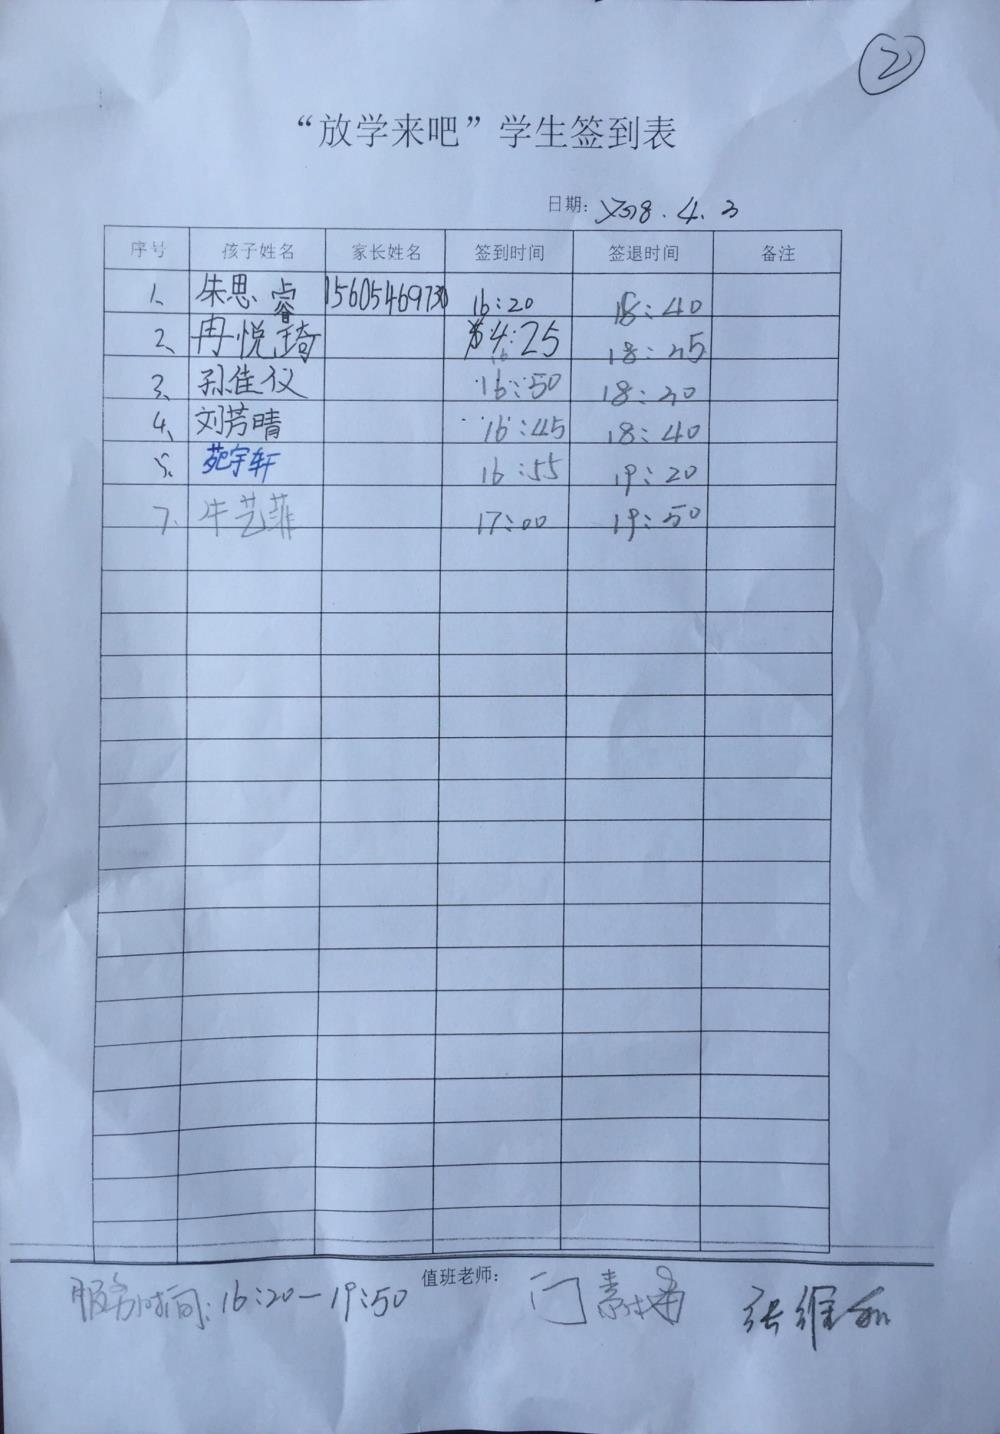 2
“放学来吧”学生签到表
日期：2018.4.3
序号 孩子姓名 家长姓名 签到时间 签退时间 备注
1、 朱思睿 15605469730 16:20 18:40
2、 冉悦琦 4:25 18:35
3、 孙佳仪 16:50 18:30
4、 刘芳晴 16:45 18:40
5、 苑宇轩 16:55 19:20
7、 牛艺菲 17:00 19:50
值班老师：
服务时间：16:20—19:50 门素梅 张维